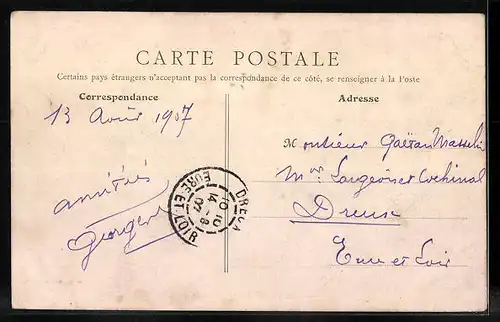 CARTE POSTALE
Certains pays étrangers n'acceptant pas la correspondance de ce côté, se renseigner à la Poste
Correspondance
Adresse
13 Août 1907
amitiés
Georges
Monsieur Gaëtan
Dreux
Eure et Loir
DREUX
10 10
14 -8
07
EURE-ET-LOIR